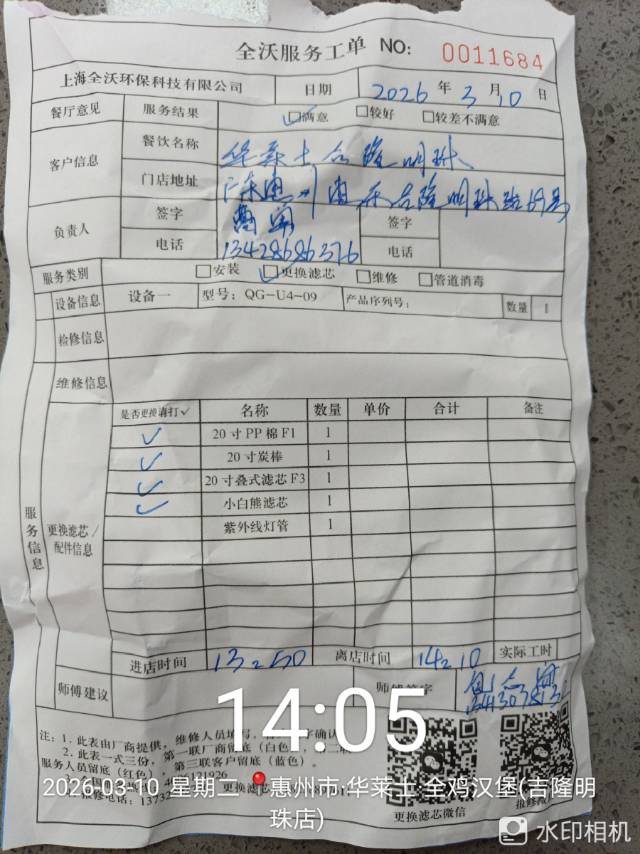 全沃服务工单 NO: 0011684
上海全沃环保科技有限公司 日期 2026 年 3 月 10 日
餐厅意见 服务结果 满意 较好 较差不满意
客户信息 餐饮名称 华莱士吉隆明珠
门店地址 广东惠州惠东吉隆明珠路
负责人 签字 签字
电话 13428686376 电话
服务类别 安装 更换滤芯 维修 管道消毒
设备信息 设备一 型号: QG-U4-09 产品序列号: 数量 1
检修信息
维修信息
服务信息
更换滤芯/配件信息
是否更换请打✓ 名称 数量 单价 合计 备注
✓ 20寸PP棉F1 1
✓ 20寸炭棒 1
✓ 20寸叠式滤芯F3 1
✓ 小白熊滤芯 1
紫外线灯管 1
进店时间 13:50 离店时间 14:10 实际工时
师傅建议 师傅签字
14:05
注: 1. 此表由厂商提供, 维修人员填写,
2. 此表一式三份, 第一联厂商留底(白色
服务人员留底(红色), 第三联客户留底(蓝色)。
2026-03-10 星期二 惠州市·华莱士·全鸡汉堡(吉隆明珠店)
更换滤芯微信
水印相机